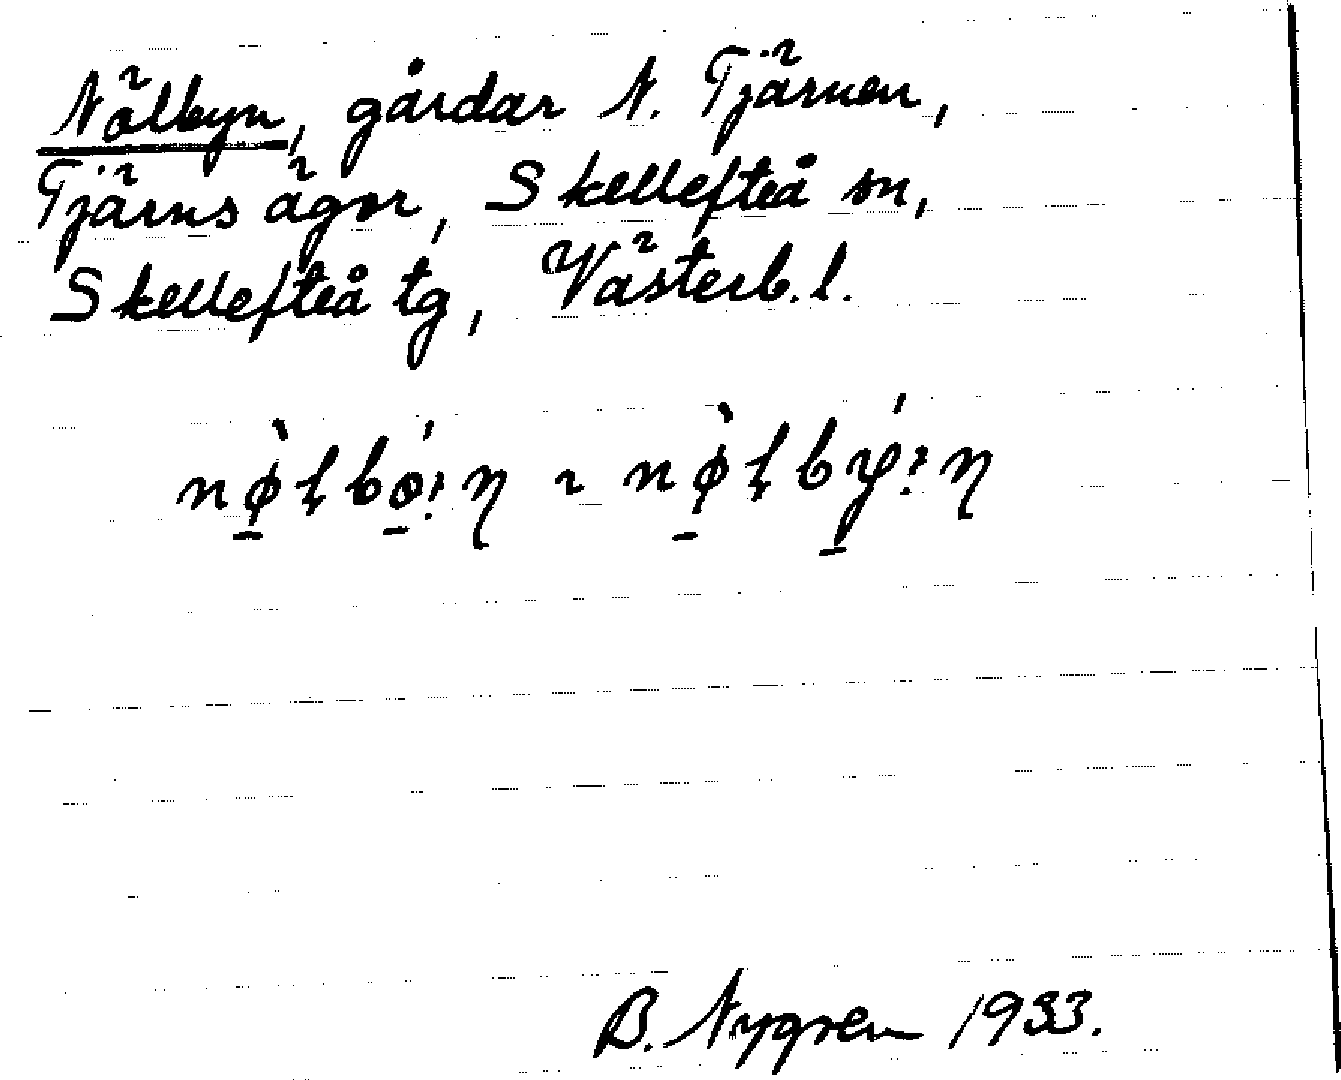 Nölbyn, gårdar N. Tjärnen,
Tjärns ägor, Skellefteå sn,
Skellefteå tg, Västerb. l.
B. Nygren 1933.